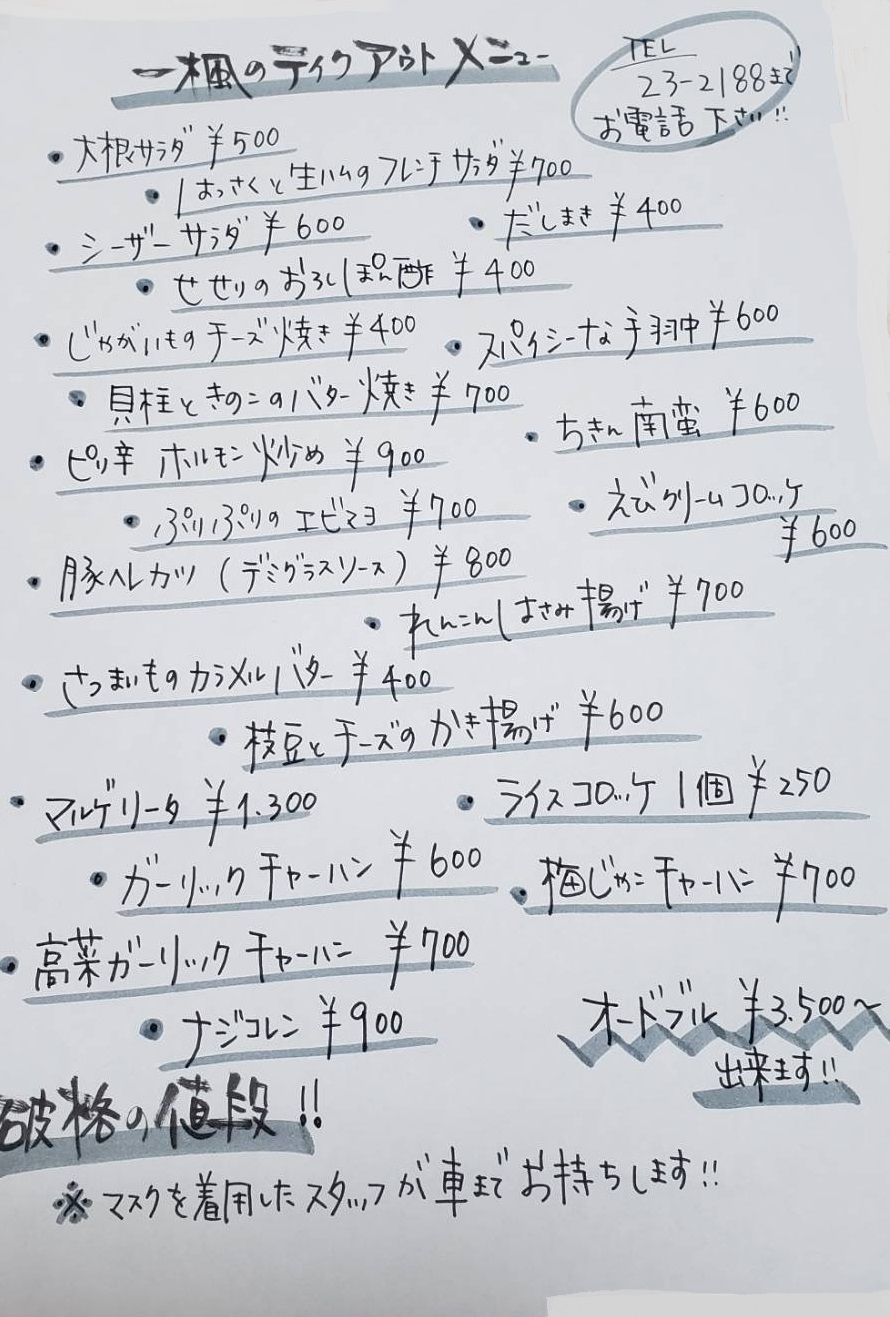 一楓のテイクアウトメニュー
TEL
23-2188まで
お電話下さい!!
・大根サラダ ¥500
・はっさくと生ハムのフレンチサラダ ¥700
・シーザーサラダ ¥600
・だしまき ¥400
・せせりのおろしぽん酢 ¥400
・じゃがいものチーズ焼き ¥400
・スパイシーな手羽中 ¥600
・貝柱ときのこのバター焼き ¥700
・ちきん南蛮 ¥600
・ピリ辛 ホルモン炒め ¥900
・ぷりぷりのエビマヨ ¥700
・えびクリームコロッケ
¥600
・豚ヘレカツ (デミグラスソース) ¥800
・れんこんはさみ揚げ ¥700
・さつまいものカラメルバター ¥400
・枝豆とチーズのかき揚げ ¥600
・マルゲリータ ¥1.300
・ライスコロッケ 1個 ¥250
・ガーリックチャーハン ¥600
・梅じゃこチャーハン ¥700
・高菜ガーリックチャーハン ¥700
・ナジコレン ¥900
オードブル ¥3.500〜
出来ます!!
破格の値段!!
※マスクを着用したスタッフが車までお持ちします!!